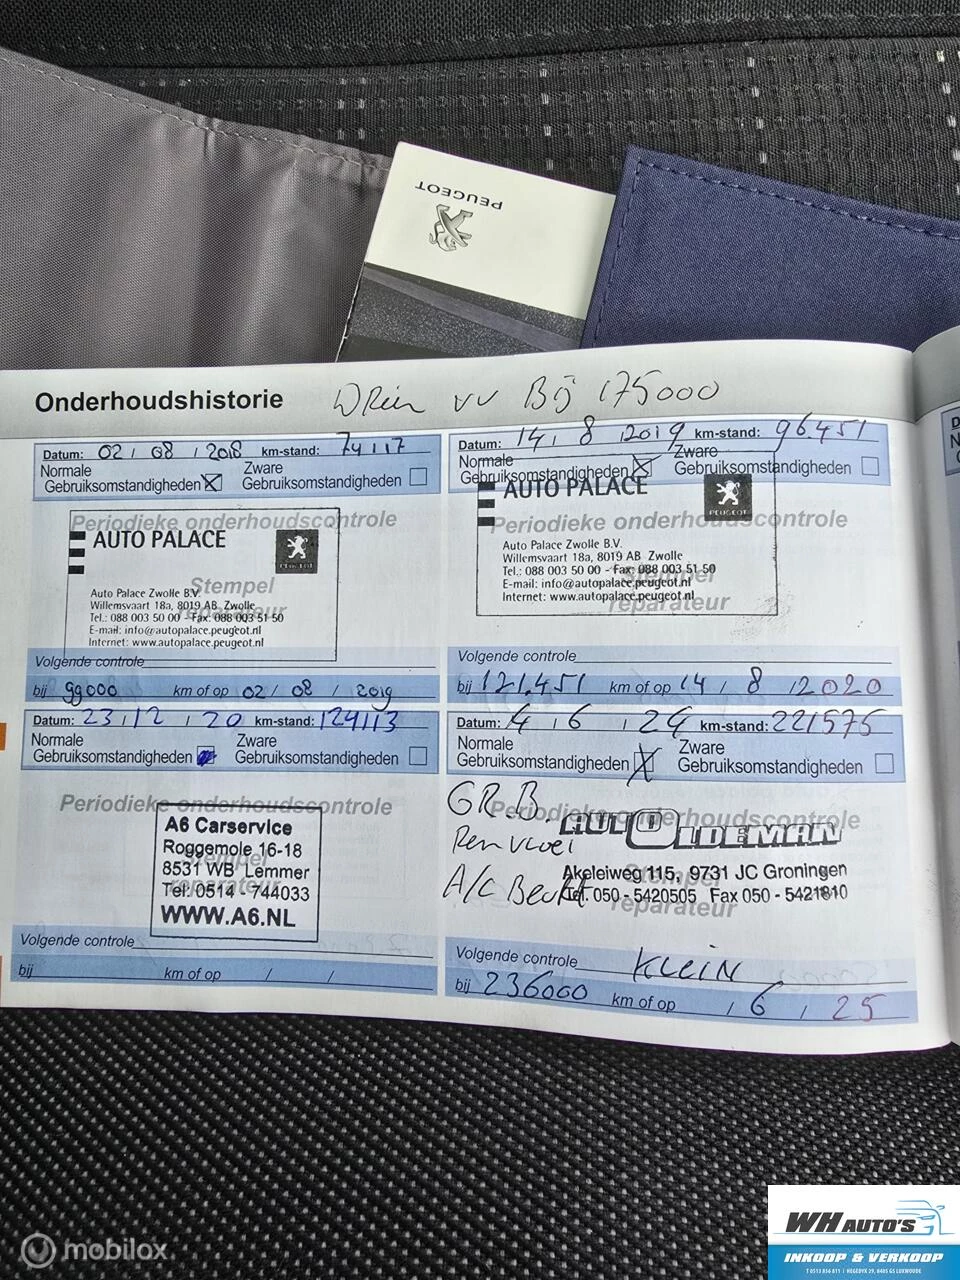 PEUGEOT
Onderhoudshistorie
Bij 175000
Datum: 02 / 08 / 2018 km-stand: 74117
Normale
Gebruiksomstandigheden
Zware
Gebruiksomstandigheden
Periodieke onderhoudscontrole
Stempel
reparateur
AUTO PALACE
PEUGEOT
Auto Palace Zwolle B.V.
Willemsvaart 18a, 8019 AB Zwolle
Tel.: 088 003 50 00 - Fax: 088 003 51 50
E-mail: info@autopalace.peugeot.nl
Internet: www.autopalace.peugeot.nl
Volgende controle
bij 99000 km of op 02 / 08 / 2019
Datum: 14 / 8 / 2019 km-stand: 96.451
Normale
Gebruiksomstandigheden
Zware
Gebruiksomstandigheden
AUTO PALACE
PEUGEOT
Periodieke onderhoudscontrole
Stempel
reparateur
Auto Palace Zwolle B.V.
Willemsvaart 18a, 8019 AB Zwolle
Tel.: 088 003 50 00 - Fax: 088 003 51 50
E-mail: info@autopalace.peugeot.nl
Internet: www.autopalace.peugeot.nl
Volgende controle
bij 121.451 km of op 14 / 8 / 2020
Datum: 23 / 12 / 20 km-stand: 124113
Normale
Gebruiksomstandigheden
Zware
Gebruiksomstandigheden
Periodieke onderhoudscontrole
Stempel
reparateur
A6 Carservice
Roggemole 16-18
8531 WB Lemmer
Tel. 0514 - 744033
WWW.A6.NL
Volgende controle
bij km of op / /
Datum: 4 / 6 / 24 km-stand: 221575
Normale
Gebruiksomstandigheden
Zware
Gebruiksomstandigheden
GR.B
Remvloei
A/C Beurt
Periodieke onderhoudscontrole
Stempel
reparateur
AUTO OLDEMAN
Akeleiweg 115, 9731 JC Groningen
Tel. 050-5420505 Fax 050-5421810
Volgende controle KLEIN
bij 236000 km of op / 6 / 25
mobilox
WH AUTO'S
INKOOP & VERKOOP
T 0513 856 811 | HEGEDYK 29, 8405 GS LUXWOUDE